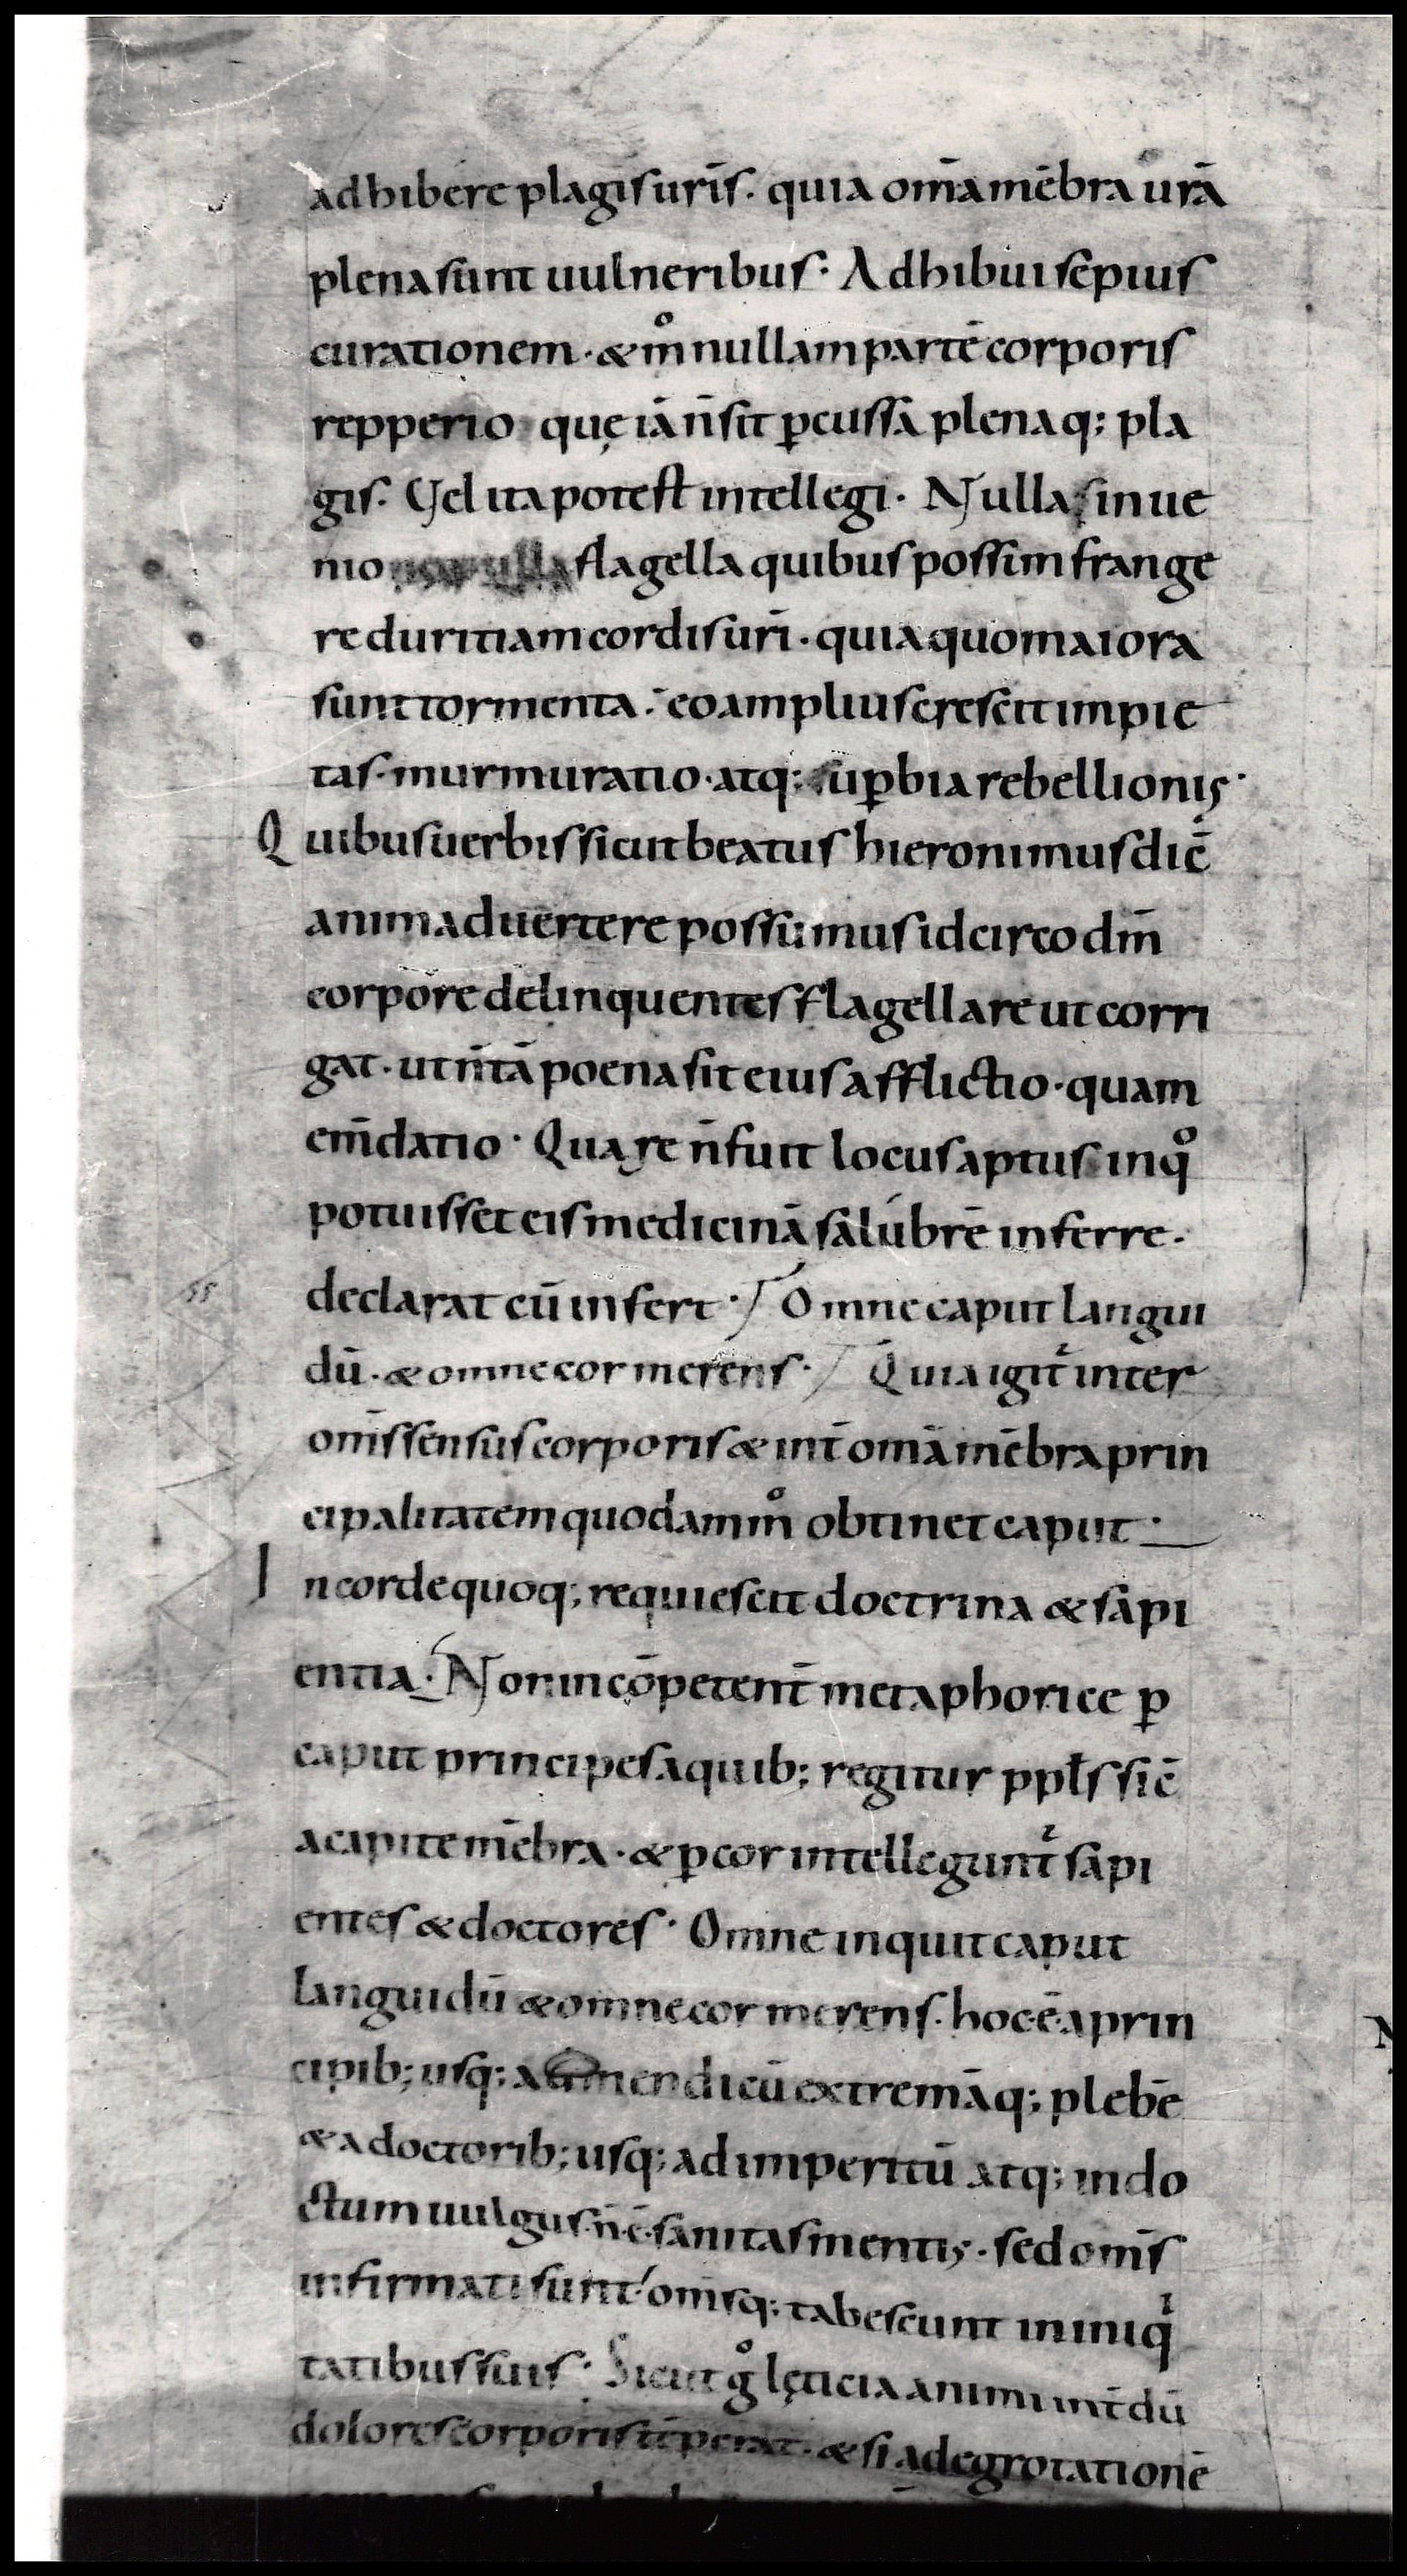 adhibere plagis ur̄is. quia om̄a mēbra ur̄a
plena sunt uulneribus. Adhibui sepius
curationem. & m̊ nullam partē corporis
repperio que iā n̄ sit ꝑcussa plenaq; pla
gis. Vel ita potest intellegi. Nulla inue
nio flagella quibus possim frange
re duritiam cordis ur̄i. quia quo maiora
sunt tormenta. eo amplius crescit impie
tas. murmuratio. atq; suꝑbia rebellionis.
Quibus uerbis sicut beatus hieronimus dic̄
animaduertere possumus idcirco dm̄
corpore delinquentes flagellare ut corri
gat. ut n̄ tā poena sit eius afflictio. quam
em̄datio. Quare n̄ fuit locus aptus in qͦ
potuisset eis medicinā salubrē inferre.
declarat cū infert. Omne caput langui
dū. & omne cor merens. Quia igit᷑ inter
om̄s sensus corporis & int̄ om̄a mēbra prin
cipalitatem quodam m̊ obtinet caput.
In corde quoq; requiescit doctrina & sapi
entia. Non incōpetent̄ metaphorice ꝑ
caput principes a quib; regitur ppl̄s sic̄
a capite mēbra. & ꝑ cor intellegunt᷑ sapi
entes & doctores. Omne inquit caput
languidū & omne cor merens. hoc.ē. a prin
cipib; usq; a mendicū extremāq; plebē
& a doctorib; usq; ad imperitū atq; indo
ctum uulgus. n̄.ē. sanitas mentis. sed om̄s
infirmati sunt. om̄sq; tabescunt in iniqͥ
tatibus suis. Sicut gͦ lęticia animi int̄dū
dolores corporis tēperat. & si ad egrotationē